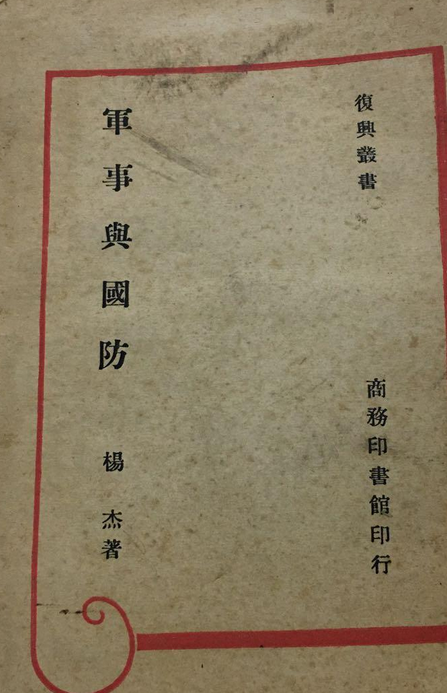 復興叢書
商務印書館印行
軍事與國防
楊杰著